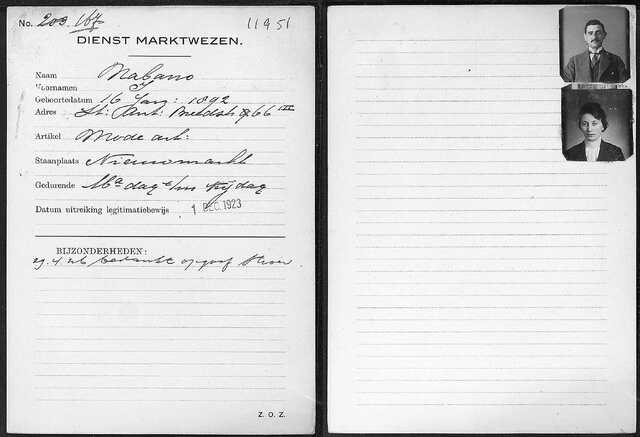 No. 203. 167. 11951
DIENST MARKTWEZEN.
Naam Nabarro
Voornamen I
Geboortedatum 16 Jan: 1892
Adres St: Ant: Breedstr 66 III
Artikel Mode art:
Staanplaats Nieuwmarkt
Gedurende Ma dag t/m Vrijdag
Datum uitreiking legitimatiebewijs 1 DEC. 1923
BIJZONDERHEDEN:
29.4.26 bedankt opgaaf
Z. O. Z.